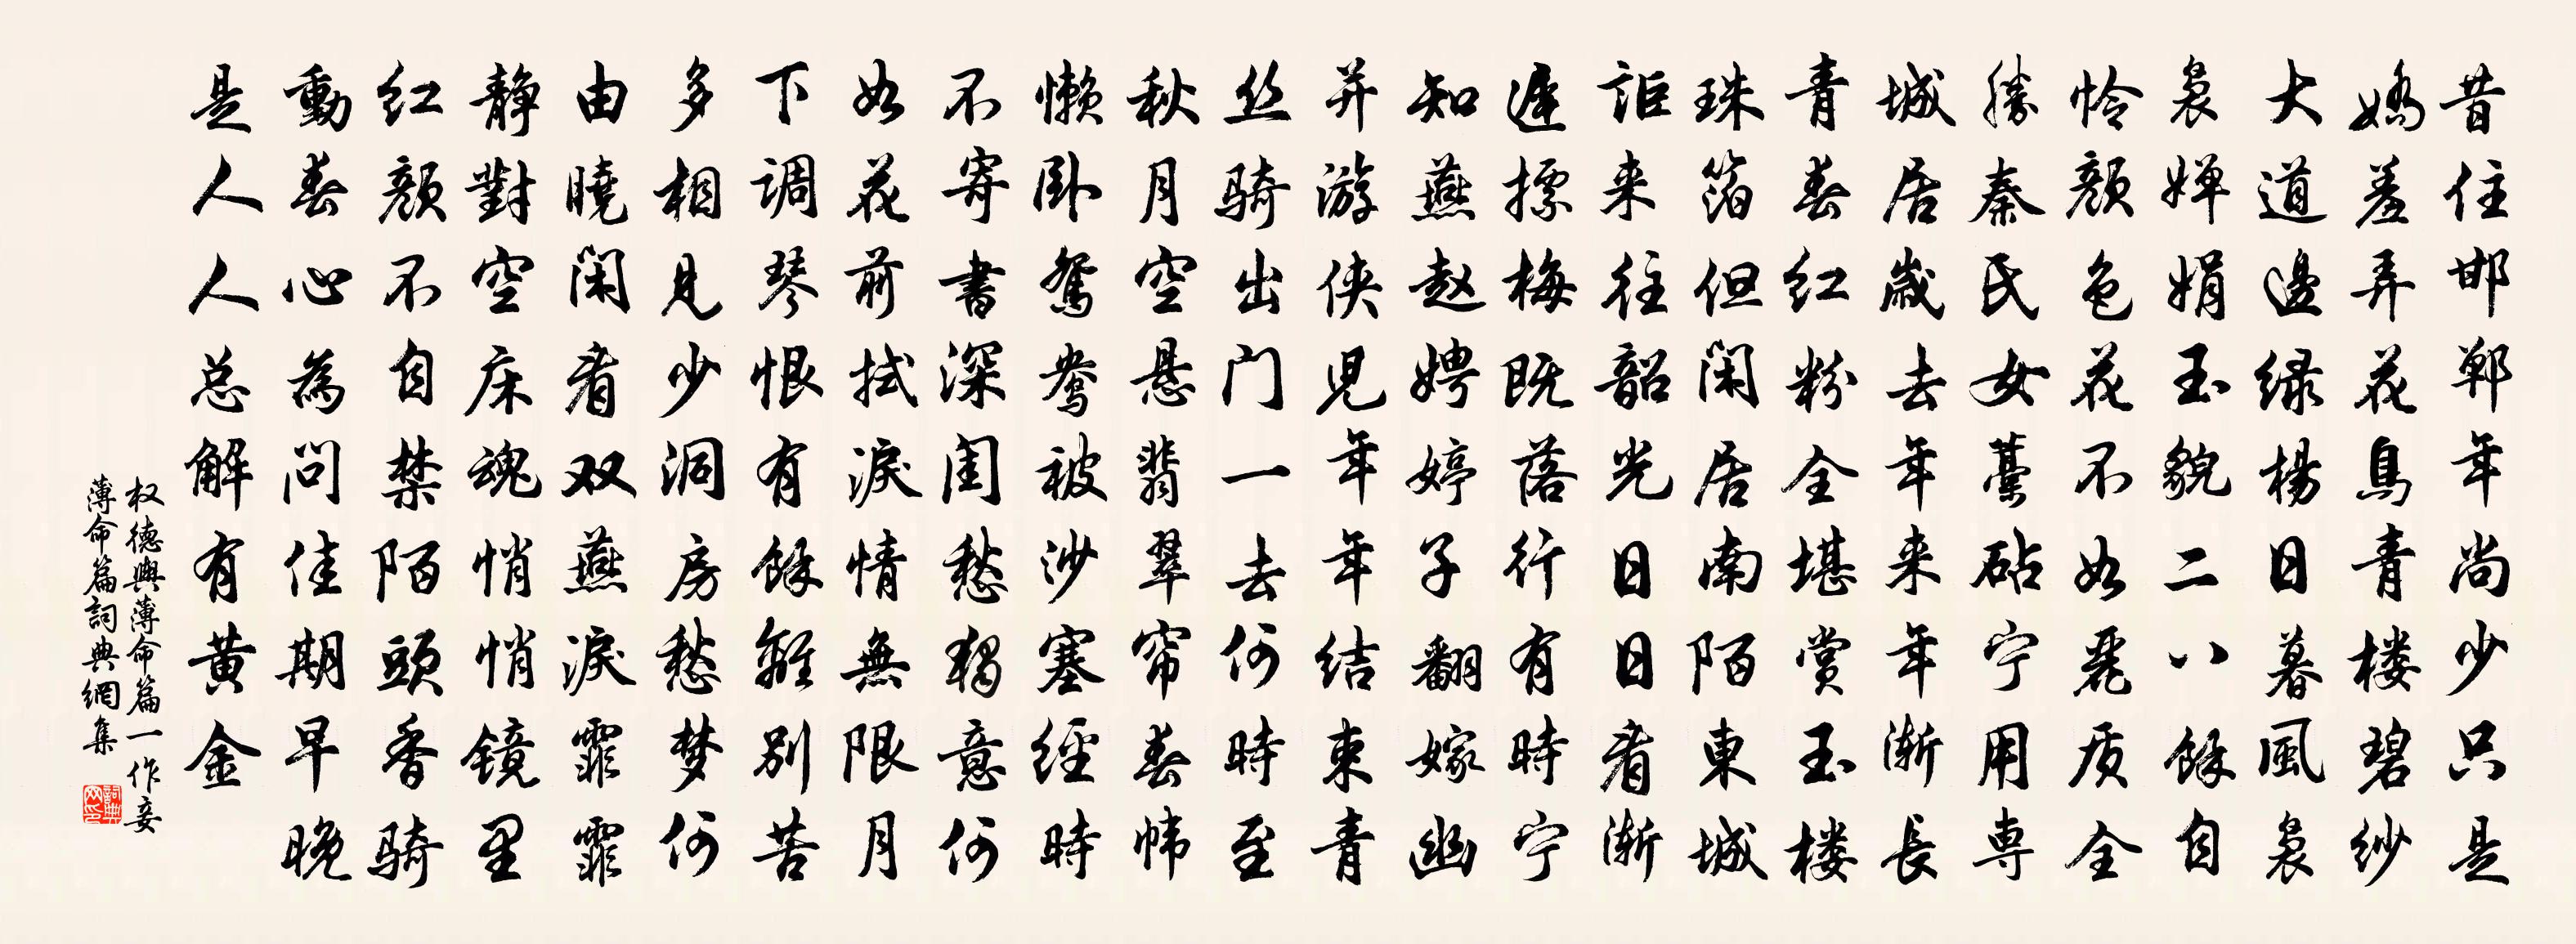 昔住邯郸年尚少只是
娇羞弄花鳥青楼碧纱
大道邊绿楊日暮風袅
袅婵娟玉貌二八餘自
怜颜色花不如麗质全
勝秦氏女藁砧宁用専
城居歲去年来年渐長
青春红粉全堪赏玉楼
珠箔但闲居南陌東城
詎来往韶光日日看渐
遲摽梅既落行有時宁
知燕赵娉婷子翻嫁幽
并游侠児年年结束青
丝骑出门一去何時至
秋月空悬翡翠帘春帏
懒卧鸳鸯被沙塞經時
不寄書深闺愁獨意何
如花前拭淚情無限月
下调琴恨有餘離别苦
多相見少洞房愁梦何
由曉闲看双燕淚霏霏
静對空床魂悄悄镜里
红颜不自禁陌頭香骑
動春心為問佳期早晚
是人人总解有黄金
权德輿薄命篇一作妾
薄命篇詞典網集
詞典網印